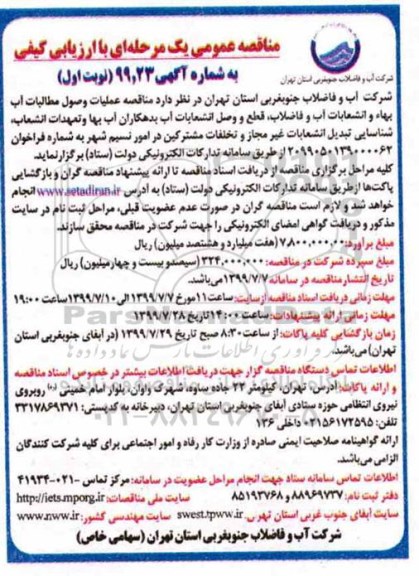 شرکت آب و فاضلاب جنوبغربی استان تهران
مناقصه عمومی یک مرحله‌ای با ارزیابی کیفی
به شماره آگهی ۹۹,۲۳ (نوبت اول)
شرکت آب و فاضلاب جنوبغربی استان تهران در نظر دارد مناقصه عملیات وصول مطالبات آب
بهاء و انشعابات آب و فاضلاب، قطع و وصل انشعابات آب بدهکاران آب بها وتعهدات انشعاب،
شناسایی تبدیل انشعابات غیر مجاز و تخلفات مشترکین در امور نسیم شهر به شماره فراخوان
۲۰۹۹۰۵۰۱۳۹۰۰۰۰۶۲ از طریق سامانه تدارکات الکترونیکی دولت (ستاد) برگزار نماید.
کلیه مراحل برگزاری مناقصه از دریافت اسناد مناقصه تا ارائه پیشنهاد مناقصه گران و بازگشایی
پاکت‌ها از طریق سامانه تدارکات الکترونیکی دولت (ستاد) به آدرس www.setadiran.ir انجام
خواهد شد و لازم است مناقصه گران در صورت عدم عضویت قبلی، مراحل ثبت نام در سایت
مذکور و دریافت گواهی امضای الکترونیکی را جهت شرکت در مناقصه محقق سازند.
مبلغ برآورد: ۷,۸۰۰,۰۰۰,۰۰۰ (هفت میلیارد و هشتصد میلیون) ریال
مبلغ سپرده شرکت در مناقصه: ۳۲۴,۰۰۰,۰۰۰ (سیصدو بیست و چهارمیلیون) ریال
تاریخ انتشار مناقصه در سامانه ۱۳۹۹/۷/۷ می‌باشد.
مهلت زمانی دریافت اسناد مناقصه از سایت: ساعت ۱۱ مورخ ۱۳۹۹/۷/۷ الی ۱۳۹۹/۷/۱۰ ساعت ۱۹:۰۰
مهلت زمانی ارائه پیشنهادات: ساعت ۱۴:۰۰ تاریخ ۱۳۹۹/۷/۲۸
زمان بازگشایی کلیه پاکات: از ساعت ۸:۳۰ صبح تاریخ ۱۳۹۹/۷/۲۹ (در آبفای جنوبغربی استان
تهران) می‌باشد.
اطلاعات تماس دستگاه مناقصه گزار جهت دریافت اطلاعات بیشتر در خصوص اسناد مناقصه
و ارائه پاکات: آدرس: تهران، کیلومتر ۲۲ جاده ساوه، شهرک واوان، بلوار امام خمینی (ره) روبروی
نیروی انتظامی حوزه ستادی آبفای جنوبغربی استان تهران، دبیرخانه به کدپستی: ۳۳۱۷۸۶۹۳۷۱
تلفن: ۰۲۱۵۶۱۷۲۵۹۵ داخلی ۱۳۶
ارائه گواهینامه صلاحیت ایمنی صادره از وزارت کار رفاه و امور اجتماعی برای کلیه شرکت کنندگان
الزامی می‌باشد.
اطلاعات تماس سامانه ستاد جهت انجام مراحل عضویت در سامانه: مرکز تماس ۰۲۱-۴۱۹۳۴
دفتر ثبت نام: ۸۸۹۶۹۷۳۷ و ۸۵۱۹۳۷۶۸ سایت ملی مناقصات: http://iets.mporg.ir
سایت آبفای جنوب غربی استان تهران: swest.tpww.ir سایت مهندسی کشور: www.nww.ir
شرکت آب و فاضلاب جنوبغربی استان تهران (سهامی خاص)